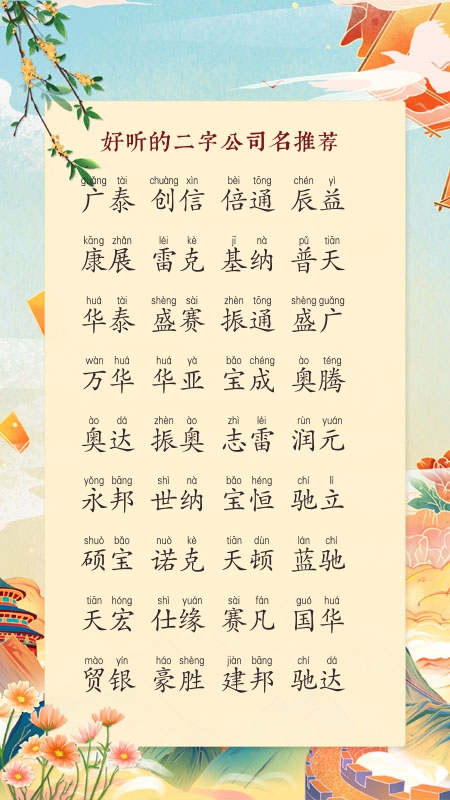 好听的二字公司名推荐
guǎng tài chuàng xìn bèi tōng chén yì
广泰 创信 倍通 辰益
kāng zhǎn léi kè jī nà pǔ tiān
康展 雷克 基纳 普天
huá tài shèng sài zhèn tōng shèng guǎng
华泰 盛赛 振通 盛广
wàn huá huá yà bǎo chéng ào téng
万华 华亚 宝成 奥腾
ào dá zhèn ào zhì léi rùn yuán
奥达 振奥 志雷 润元
yǒng bāng shì nà bǎo héng chí lì
永邦 世纳 宝恒 驰立
shuò bǎo nuò kè tiān dùn lán chí
硕宝 诺克 天顿 蓝驰
tiān hóng shì yuán sài fán guó huá
天宏 仕缘 赛凡 国华
mào yín háo shèng jiàn bāng chí dá
贸银 豪胜 建邦 驰达